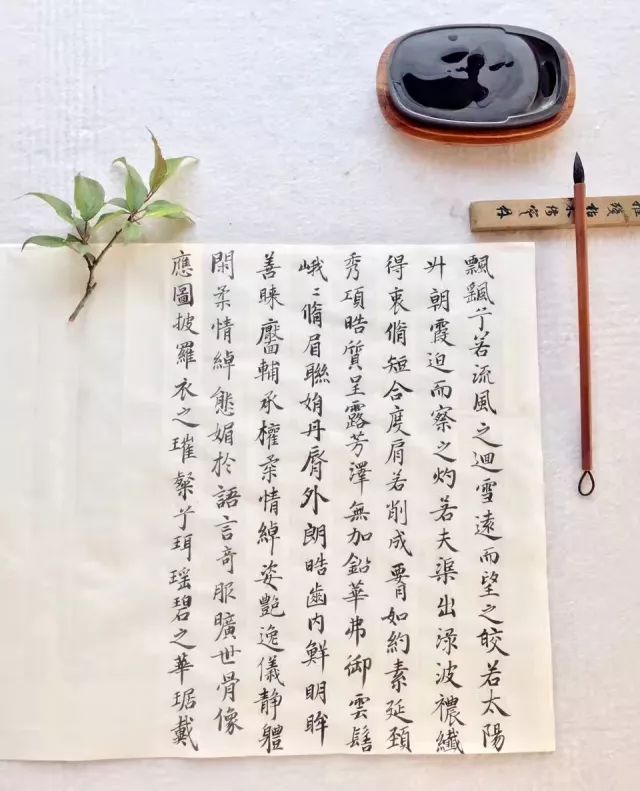 飄颻兮若流風之迴雪遠而望之皎若太陽
升朝霞迫而察之灼若夫渠出淥波襛纖
得衷脩短合度肩若削成腰如約素延頸
秀項晧質呈露芳澤無加鉛華弗御雲髻
峨〻脩眉聯娟丹脣外朗晧齒内鮮明眸
善睞靨輔承權柔情綽姿艷逸儀靜體
閑柔情綽態媚於語言奇服曠世骨像
應圖披羅衣之璀粲兮珥瑤碧之華琚戴